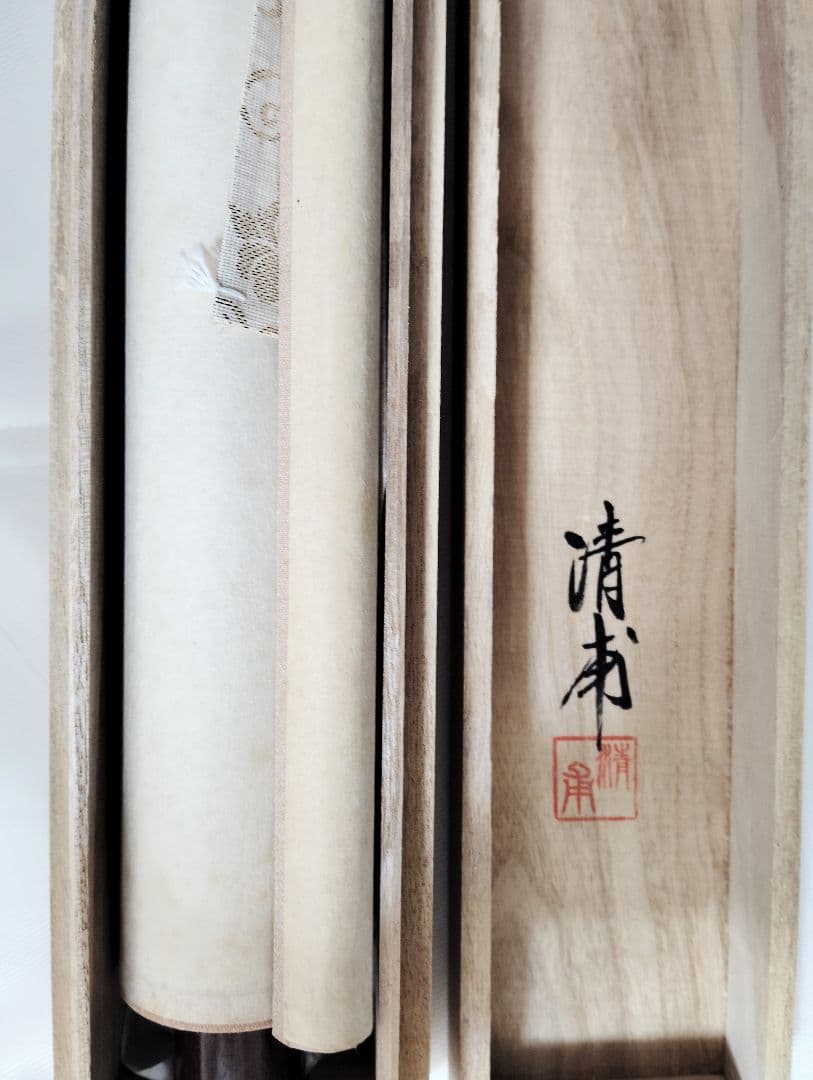 清甫
清甫